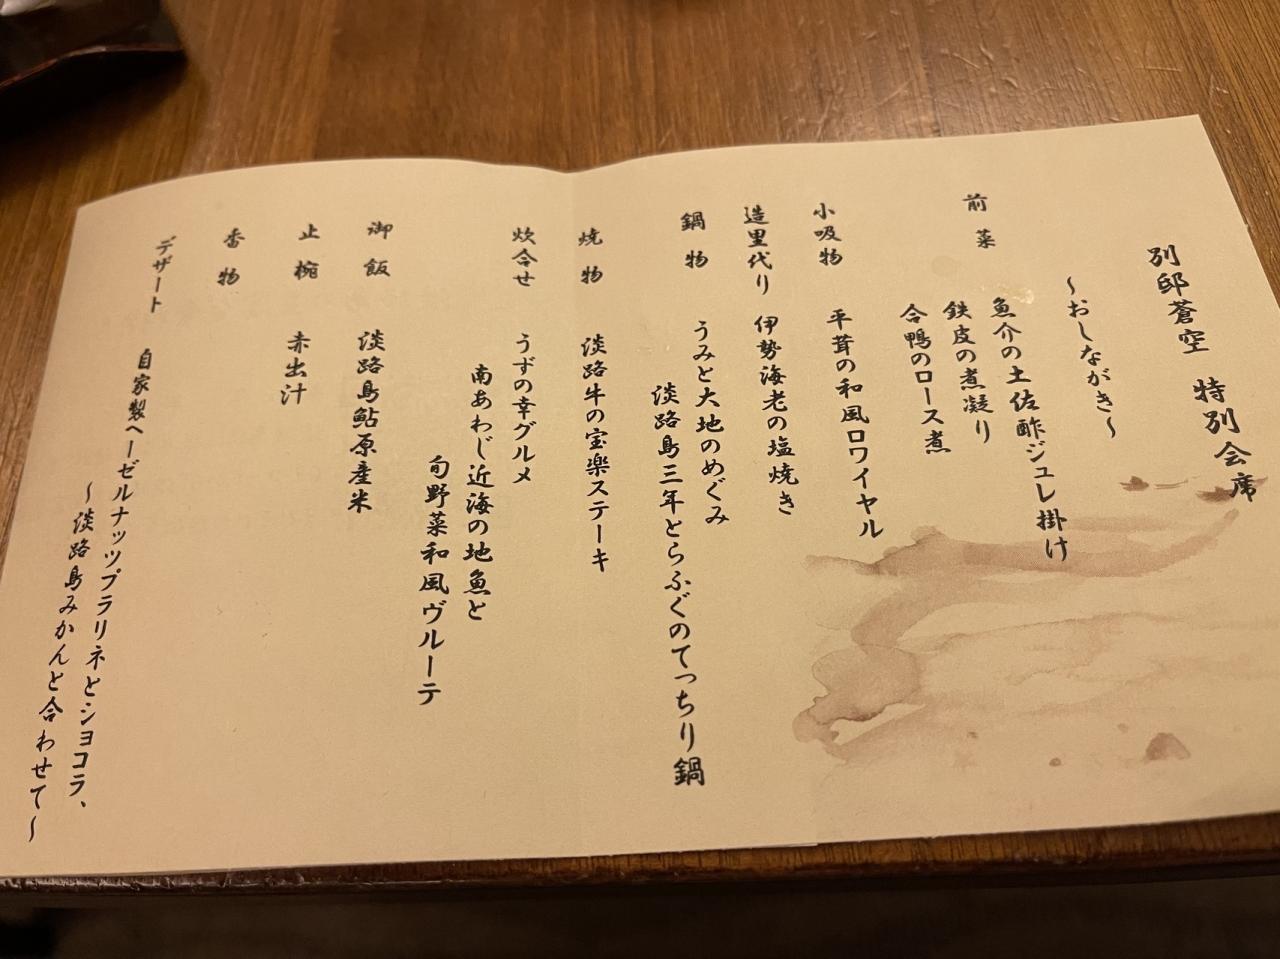 別邸蒼空　特別会席
～おしながき～
前菜　魚介の土佐酢ジュレ掛け
鉄皮の煮凝り
合鴨のロース煮
小吸物　平茸の和風ロワイヤル
造里代り　伊勢海老の塩焼き
鍋物　うみと大地のめぐみ
淡路島三年とらふぐのてっちり鍋
焼物　淡路牛の宝楽ステーキ
炊合せ　うずの幸グルメ
南あわじ近海の地魚と
旬野菜和風ヴルーテ
御飯　淡路島鮎原産米
止椀　赤出汁
香物
デザート　自家製ヘーゼルナッツプラリネとショコラ、
～淡路島みかんと合わせて～